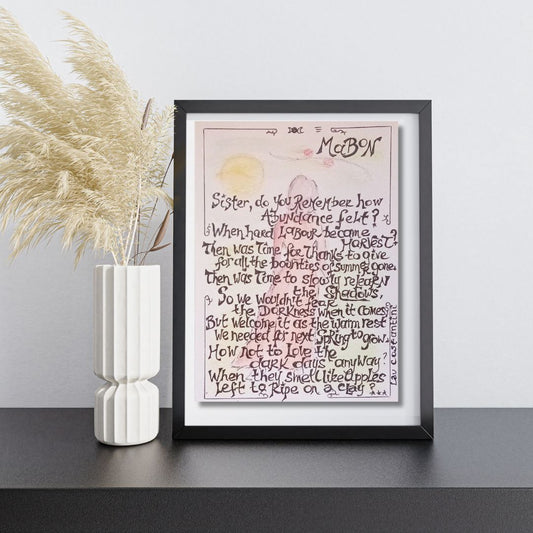 MaBoN
Sister, do You Remember how
Abundance felt?
When hard Labour became
Harvest?
Then was Time for Thanks to give
for all the bounties of summer gone.
Then was Time to slowly relearn
the Shadows,
So we wouldn't fear
the Darkness when it comes
But welcome it as the warm rest
we needed for next Spring to grow.
How not to Love the
dark days anyway?
When they smell like Apples
Left to Ripe on a